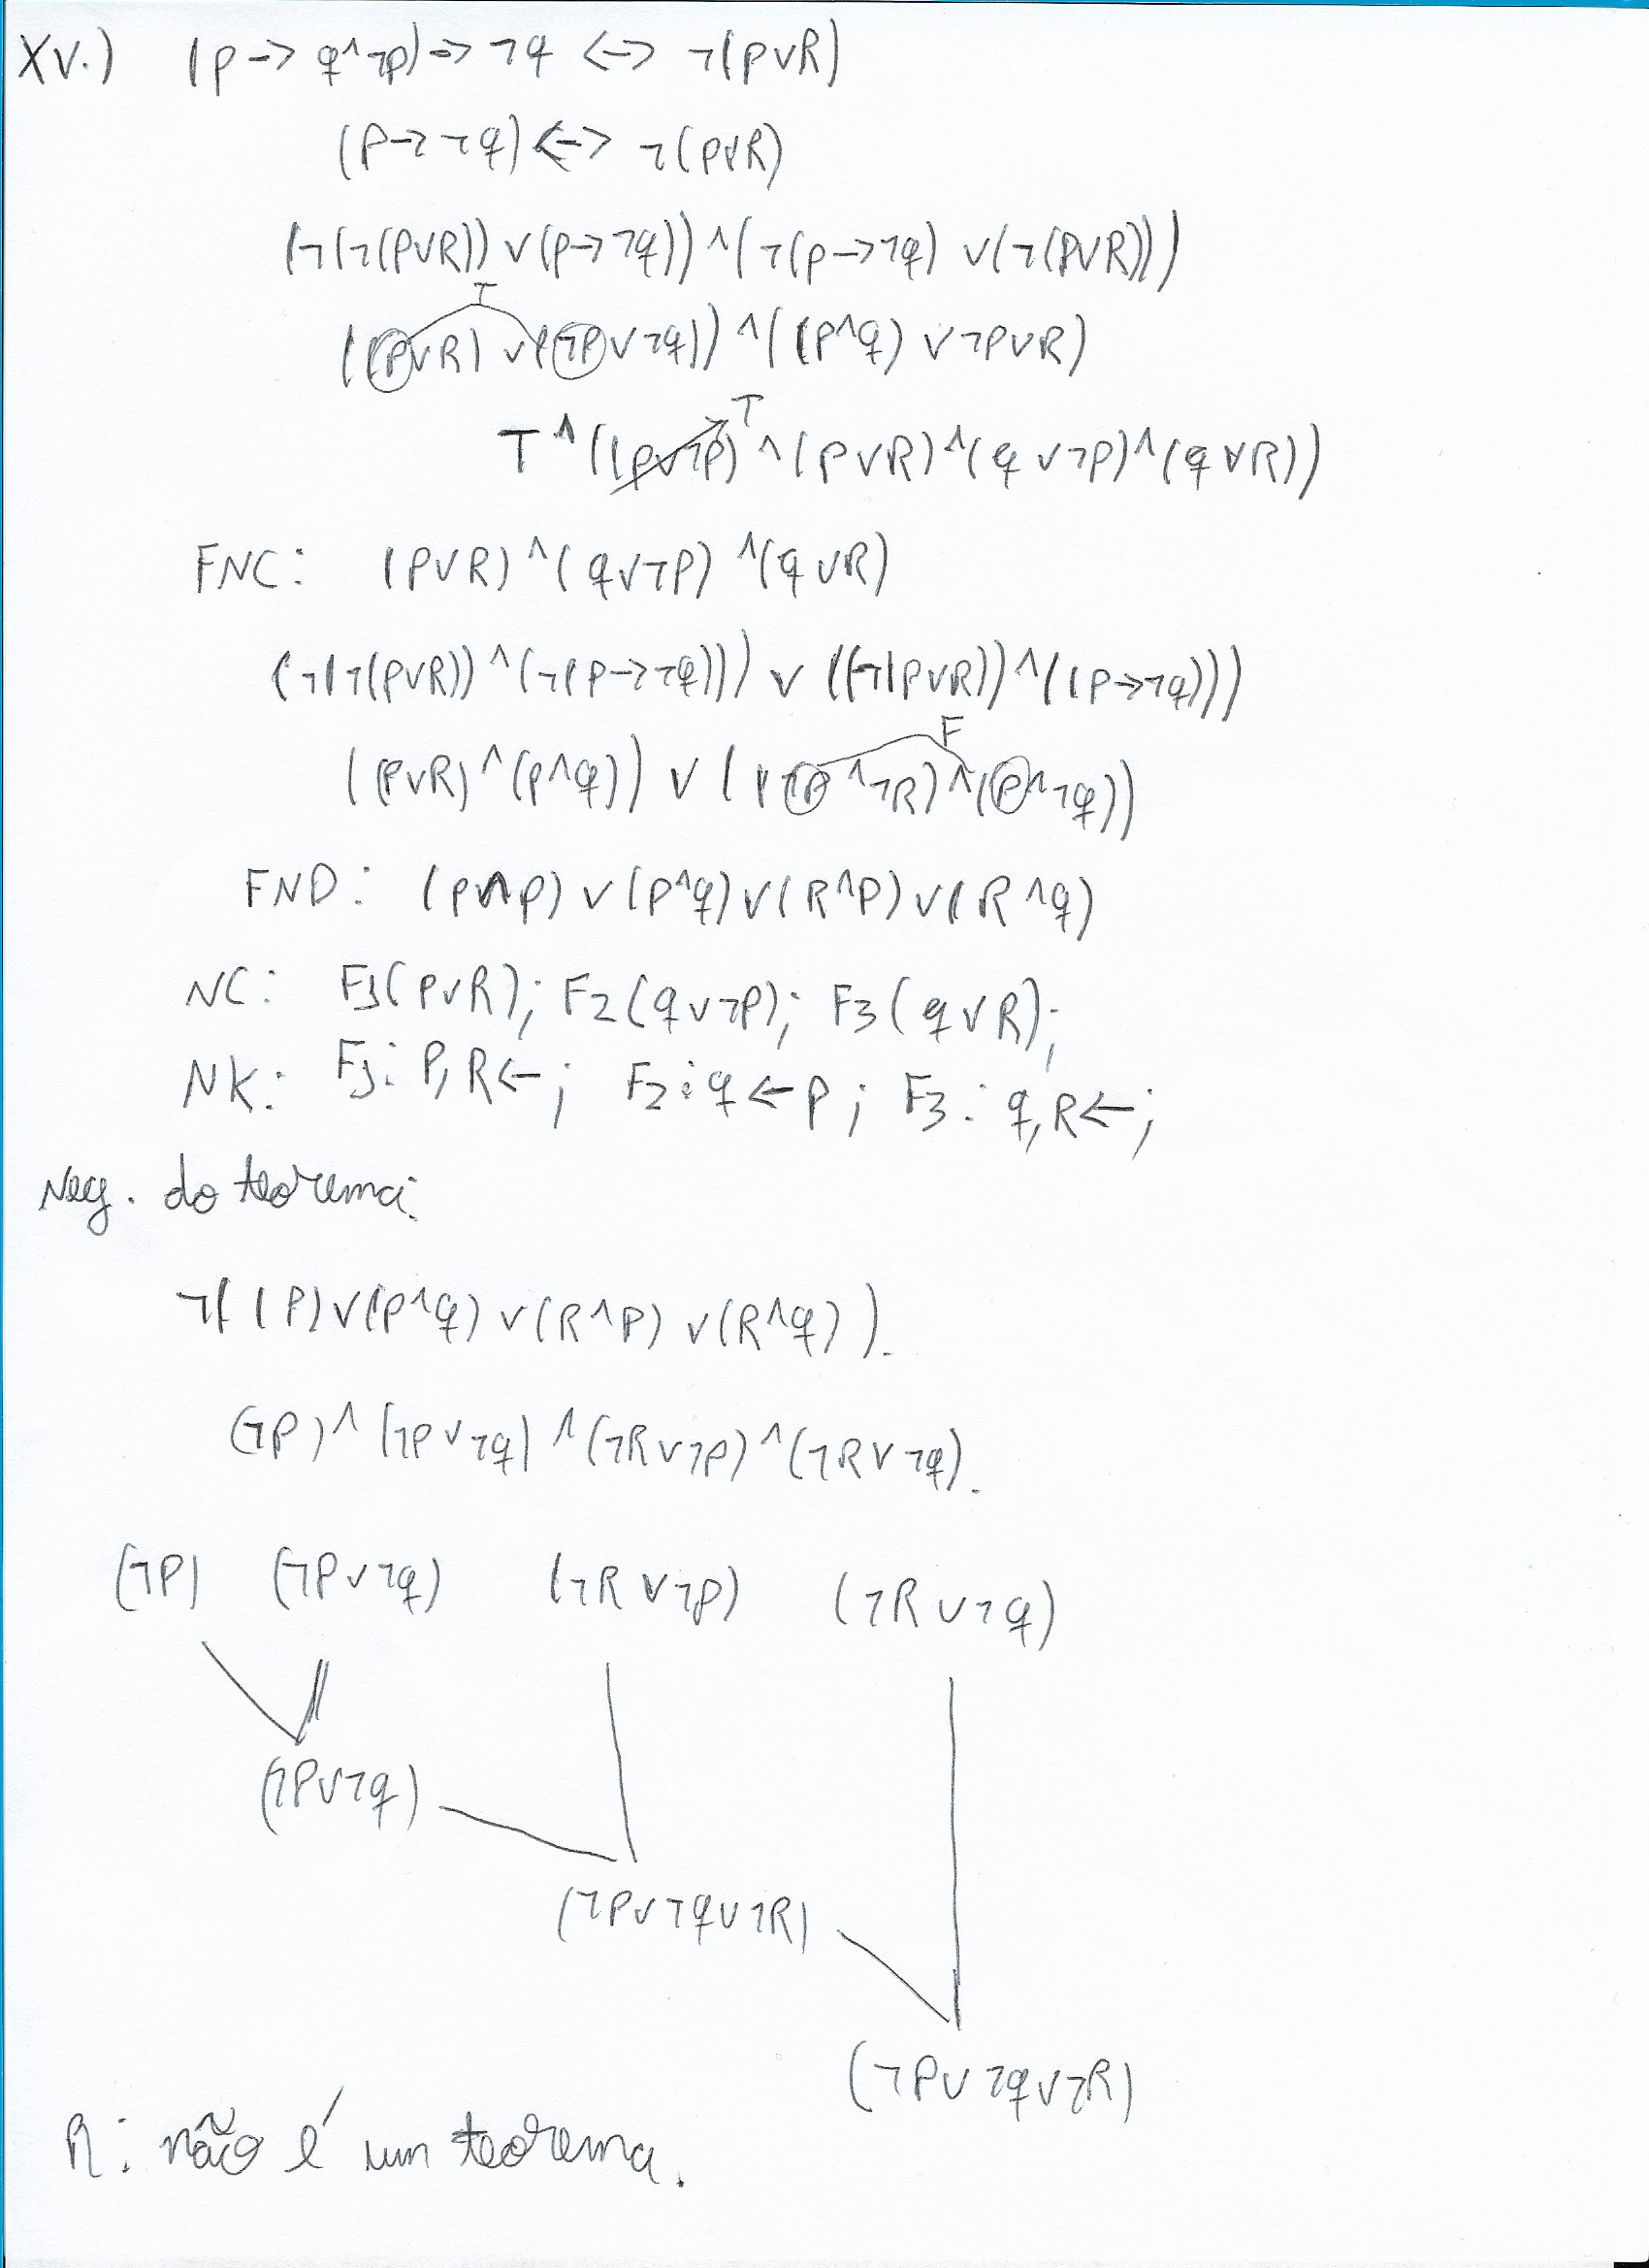 XV.) (p -> q^¬p) => ¬q <-> ¬(p∨R)
(P->¬q) <-> ¬(p∨R)
(¬(¬(P∨R)) ∨ (p->¬q)) ^ (¬(p->¬q) ∨ (¬(P∨R)))
T
((P∨R) ∨ (¬P∨¬q)) ^ ((P^q) ∨ ¬P∨R)
T
T ^ ((p∨¬P) ^ (P∨R) ^ (q∨¬P) ^ (q∨R))
FNC: (P∨R) ^ (q∨¬P) ^ (q∨R)
(¬(¬(P∨R)) ^ (¬(P->¬q))) ∨ ((¬(P∨R)) ^ ((P->¬q)))
F
((P∨R) ^ (P^q)) ∨ ((¬P ^ ¬R) ^ (P^¬q))
FND: (P^P) ∨ (P^q) ∨ (R^P) ∨ (R^q)
NC: F1(P∨R); F2(q∨¬P); F3(q∨R);
NK: F1: P,R<-; F2: q<-P; F3: q,R<-;
Neg. do teorema:
¬((P)∨(P^q)∨(R^P)∨(R^q)).
(¬P) ^ (¬P∨¬q) ^ (¬R∨¬P) ^ (¬R∨¬q).
(¬P) (¬P∨¬q) (¬R∨¬P) (¬R∨¬q)
(¬P∨¬q)
(¬P∨¬q∨¬R)
(¬P∨¬q∨¬R)
R: não é um teorema.